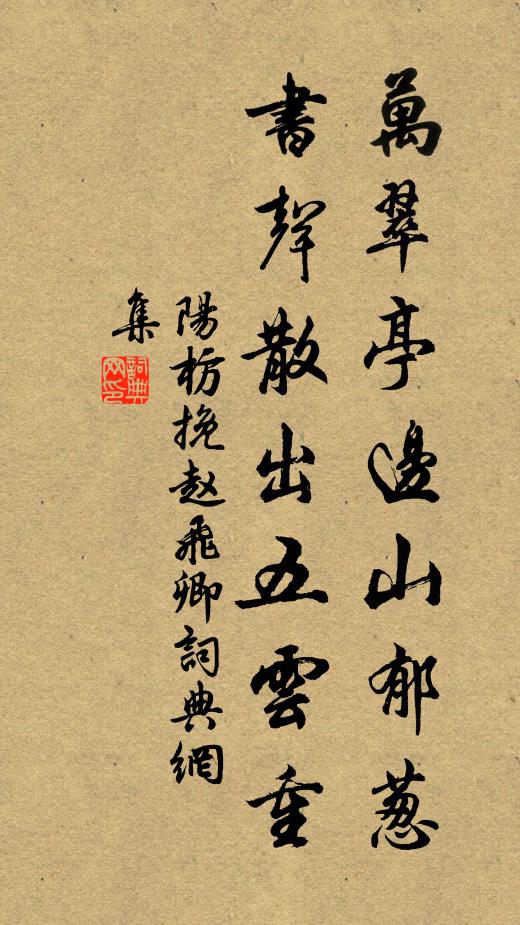 萬翠亭邊山郁葱
書聲散出五雲重
陽枋挽赵飛卿詞典網
集
詞典
网印